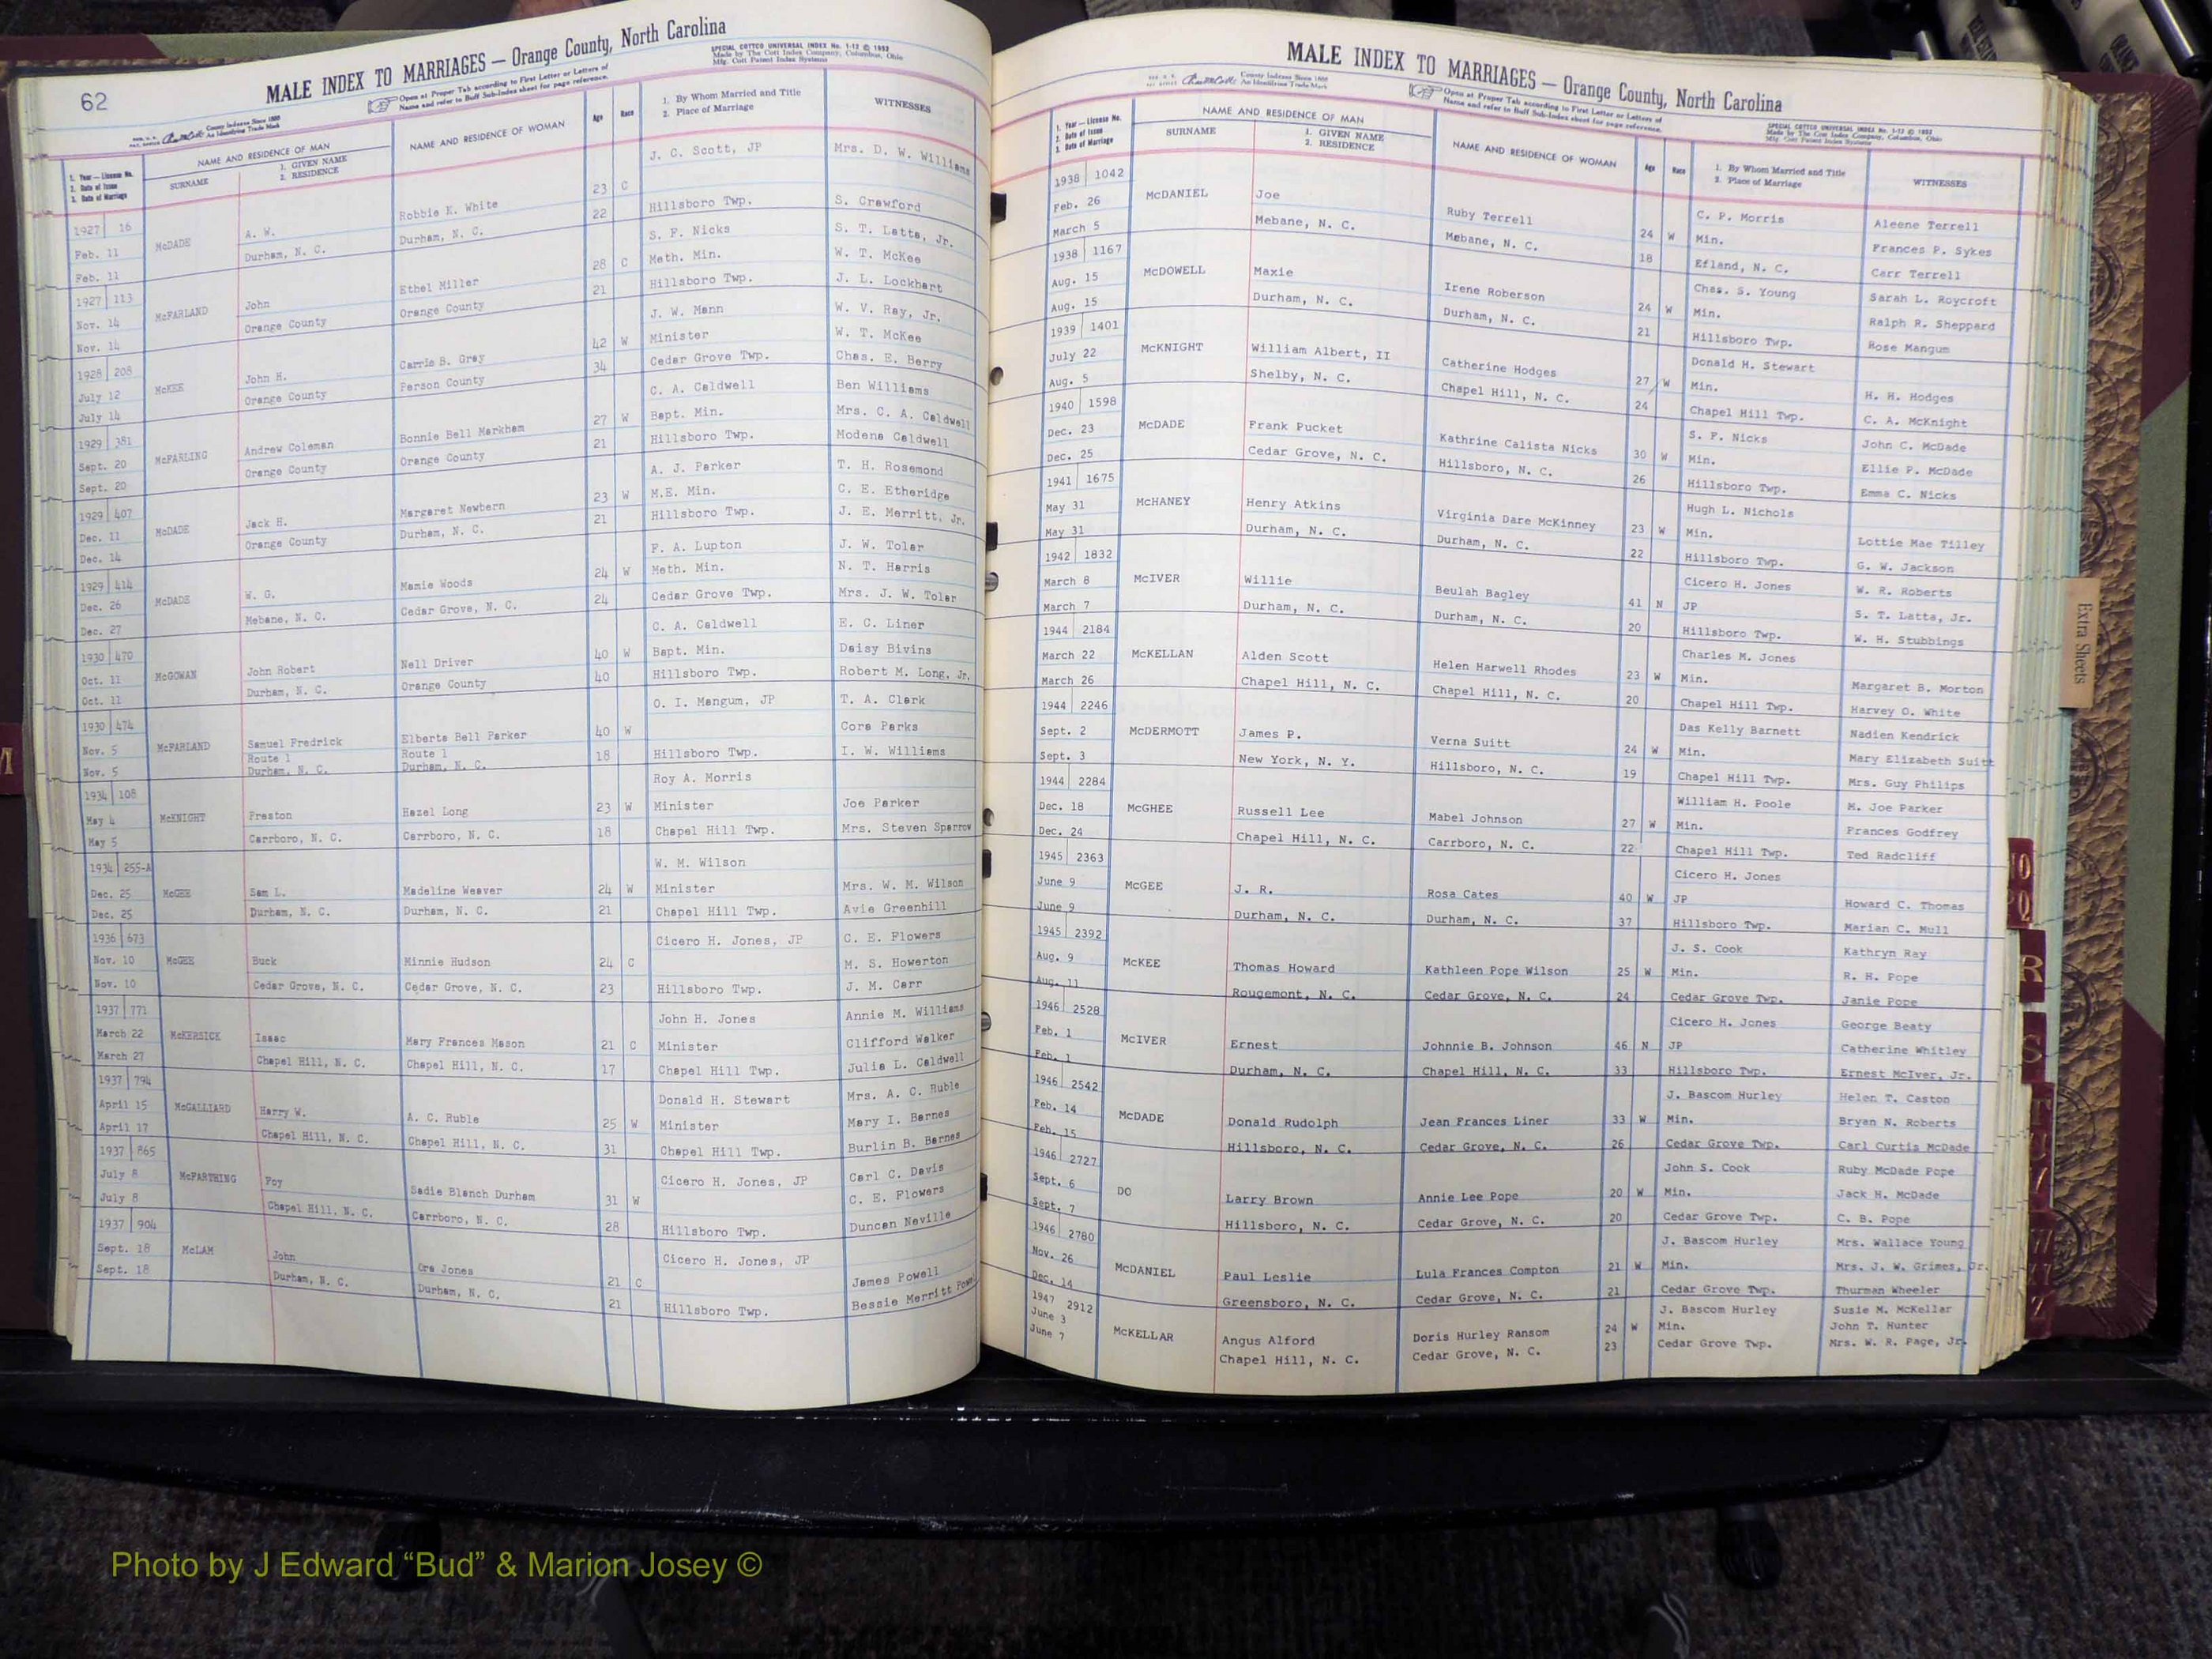 62
MALE INDEX TO MARRIAGES — Orange County, North Carolina
SPECIAL COTTCO UNIVERSAL INDEX No. 1-12 © 1952
Made by The Cott Index Company, Columbus, Ohio
Mfg. Cott Patent Index Systems
Open at Proper Tab according to First Letter or Letters of
Name and refer to Buff Sub-Index sheet for page reference.
County Indexes Since 1888
An Identifying Trade Mark
1. Year — License No.
2. Date of Issue
3. Date of Marriage
NAME AND RESIDENCE OF MAN
SURNAME
1. GIVEN NAME
2. RESIDENCE
NAME AND RESIDENCE OF WOMAN
Age
Race
1. By Whom Married and Title
2. Place of Marriage
WITNESSES
1927 16 McDADE A. W. Robbie K. White 23 C J. C. Scott, JP Mrs. D. W. Williams
Feb. 11 Durham, N. C. Durham, N. C. 22 Hillsboro Twp. S. Crawford
Feb. 11 S. T. Latta, Jr.
1927 113 McFARLAND John Ethel Miller 28 C S. F. Nicks W. T. McKee
Nov. 14 Orange County Orange County 21 Meth. Min. J. L. Lockhart
Nov. 14 Hillsboro Twp. W. V. Ray, Jr.
1928 208 McKEE John H. Carrie B. Gray 42 W J. W. Mann W. T. McKee
July 12 Orange County Person County 34 Minister Chas. E. Berry
July 14 Cedar Grove Twp. Ben Williams
1929 381 McFARLING Andrew Coleman Bonnie Bell Markham 27 W C. A. Caldwell Mrs. C. A. Caldwell
Sept. 20 Orange County Orange County 21 Bapt. Min. Modena Caldwell
Sept. 20 Hillsboro Twp. T. H. Rosemond
1929 407 McDADE Jack H. Margaret Newbern 23 W A. J. Parker C. E. Etheridge
Dec. 11 Orange County Durham, N. C. 21 M.E. Min. J. E. Merritt, Jr.
Dec. 14 Hillsboro Twp. J. W. Toler
1929 414 McDADE W. G. Mamie Woods 24 W F. A. Lupton N. T. Harris
Dec. 26 Mebane, N. C. Cedar Grove, N. C. 24 Meth. Min. Mrs. J. W. Toler
Dec. 27 Cedar Grove Twp.
1930 470 McGOWAN John Robert Nell Driver 40 W C. A. Caldwell E. C. Liner
Oct. 11 Durham, N. C. Orange County 40 Bapt. Min. Daisy Bivins
Oct. 11 Hillsboro Twp. Robert M. Long, Jr.
1930 474 McFARLAND Samuel Fredrick Elberta Bell Parker 40 W O. I. Mangum, JP T. A. Clark
Nov. 5 Route 1 Route 1 18 Cora Parks
Nov. 5 Durham, N. C. Durham, N. C. Hillsboro Twp. I. W. Williams
1934 108 McKNIGHT Preston Hazel Long 23 W Roy A. Morris
May 4 Carrboro, N. C. Carrboro, N. C. 18 Minister Joe Parker
May 5 Chapel Hill Twp. Mrs. Steven Sparrow
1934 255-A McGEE Sam L. Madeline Weaver 24 W W. M. Wilson
Dec. 25 Durham, N. C. Durham, N. C. 21 Minister Mrs. W. M. Wilson
Dec. 25 Chapel Hill Twp. Avie Greenhill
1936 673 McGEE Buck Minnie Hudson 24 C Cicero H. Jones, JP C. E. Flowers
Nov. 10 Cedar Grove, N. C. Cedar Grove, N. C. 23 M. S. Howerton
Nov. 10 Hillsboro Twp. J. M. Carr
1937 771 McKERSICK Isaac Mary Frances Mason 21 C John H. Jones Annie M. Williams
March 22 Chapel Hill, N. C. Chapel Hill, N. C. 17 Minister Clifford Walker
March 27 Chapel Hill Twp. Julia L. Caldwell
1937 794 McGALLIARD Harry W. A. C. Ruble 25 W Donald H. Stewart Mrs. A. C. Ruble
April 15 Chapel Hill, N. C. Chapel Hill, N. C. 31 Minister Mary I. Barnes
April 17 Chapel Hill Twp. Burlin B. Barnes
1937 865 McFARTHING Foy Sadie Blanch Durham 31 W Cicero H. Jones, JP Carl C. Davis
July 8 Chapel Hill, N. C. Carrboro, N. C. 28 C. E. Flowers
July 8 Hillsboro Twp. Duncan Neville
1937 904 McLAM John Ora Jones 21 C Cicero H. Jones, JP
Sept. 18 Durham, N. C. Durham, N. C. 21 James Powell
Sept. 18 Hillsboro Twp. Bessie Merritt
MALE INDEX TO MARRIAGES — Orange County, North Carolina
County Indexes Since 1888
An Identifying Trade Mark
Open at Proper Tab according to First Letter or Letters of
Name and refer to Buff Sub-Index sheet for page reference.
SPECIAL COTTCO UNIVERSAL INDEX No. 1-12 © 1952
Made by The Cott Index Company, Columbus, Ohio
Mfg. Cott Patent Index Systems
1. Year — License No.
2. Date of Issue
3. Date of Marriage
NAME AND RESIDENCE OF MAN
SURNAME
1. GIVEN NAME
2. RESIDENCE
NAME AND RESIDENCE OF WOMAN
Age
Race
1. By Whom Married and Title
2. Place of Marriage
WITNESSES
1938 1042 McDANIEL Joe Ruby Terrell 24 W C. P. Morris Aleene Terrell
Feb. 26 Mebane, N. C. Mebane, N. C. 18 Min. Frances P. Sykes
March 5 Efland, N. C. Carr Terrell
1938 1167 McDOWELL Maxie Irene Roberson 24 W Chas. S. Young Sarah L. Roycroft
Aug. 15 Durham, N. C. Durham, N. C. 21 Min. Ralph R. Sheppard
Aug. 15 Hillsboro Twp. Rose Mangum
1939 1401 McKNIGHT William Albert, II Catherine Hodges 27 W Donald H. Stewart
July 22 Shelby, N. C. Chapel Hill, N. C. 24 Min. H. H. Hodges
Aug. 5 Chapel Hill Twp. C. A. McKnight
1940 1598 McDADE Frank Pucket Kathrine Calista Nicks 30 W S. F. Nicks John C. McDade
Dec. 23 Cedar Grove, N. C. Hillsboro, N. C. 26 Min. Ellie P. McDade
Dec. 25 Hillsboro Twp. Emma C. Nicks
1941 1675 McHANEY Henry Atkins Virginia Dare McKinney 23 W Hugh L. Nichols
May 31 Durham, N. C. Durham, N. C. 22 Min. Lottie Mae Tilley
May 31 Hillsboro Twp. G. W. Jackson
1942 1832 McIVER Willie Beulah Bagley 41 N Cicero H. Jones W. R. Roberts
March 8 Durham, N. C. Durham, N. C. 20 JP S. T. Latta, Jr.
March 7 Hillsboro Twp. W. H. Stubbings
1944 2184 McKELLAN Alden Scott Helen Harwell Rhodes 23 W Charles M. Jones
March 22 Chapel Hill, N. C. Chapel Hill, N. C. 20 Min. Margaret B. Morton
March 26 Chapel Hill Twp. Harvey O. White
1944 2246 McDERMOTT James P. Verna Suitt 24 W Das Kelly Barnett Nadien Kendrick
Sept. 2 New York, N. Y. Hillsboro, N. C. 19 Min. Mary Elizabeth Suitt
Sept. 3 Chapel Hill Twp. Mrs. Guy Philips
1944 2284 McGHEE Russell Lee Mabel Johnson 27 W William H. Poole M. Joe Parker
Dec. 18 Chapel Hill, N. C. Carrboro, N. C. 22 Min. Frances Godfrey
Dec. 24 Chapel Hill Twp. Ted Radcliff
1945 2363 McGEE J. R. Rosa Cates 40 W Cicero H. Jones
June 9 Durham, N. C. Durham, N. C. 37 JP Howard C. Thomas
June 9 Hillsboro Twp. Marian C. Mull
1945 2392 McKEE Thomas Howard Kathleen Pope Wilson 25 W J. S. Cook Kathryn Ray
Aug. 9 Rougemont, N. C. Cedar Grove, N. C. 24 Min. R. H. Pope
Aug. 11 Cedar Grove Twp. Janie Pope
1946 2528 McIVER Ernest Johnnie B. Johnson 46 N Cicero H. Jones George Beaty
Feb. 1 Durham, N. C. Chapel Hill, N. C. 33 JP Catherine Whitley
Feb. 1 Hillsboro Twp. Ernest McIver, Jr.
1946 2542 McDADE Donald Rudolph Jean Frances Liner 33 W J. Bascom Hurley Helen T. Caston
Feb. 14 Hillsboro, N. C. Cedar Grove, N. C. 26 Min. Bryan N. Roberts
Feb. 15 Cedar Grove Twp. Carl Curtis McDade
1946 2727 DO Larry Brown Annie Lee Pope 20 W John S. Cook Ruby McDade Pope
Sept. 6 Hillsboro, N. C. Cedar Grove, N. C. 20 Min. Jack H. McDade
Sept. 7 Cedar Grove Twp. C. B. Pope
1946 2780 McDANIEL Paul Leslie Lula Frances Compton 21 W J. Bascom Hurley Mrs. Wallace Young
Nov. 26 Greensboro, N. C. Cedar Grove, N. C. 21 Min. Mrs. J. W. Grimes, Jr.
Dec. 14 Cedar Grove Twp. Thurman Wheeler
1947 2912 McKELLAR Angus Alford Doris Hurley Ransom 24 W J. Bascom Hurley Susie M. McKellar
June 3 Chapel Hill, N. C. Cedar Grove, N. C. 23 Min. John T. Hunter
June 7 Cedar Grove Twp. Mrs. W. R. Page, Jr.
Extra Sheets
R
S
T
Photo by J Edward “Bud” & Marion Josey ©